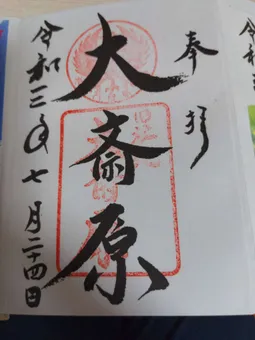 奉拝
大斎原
令和三年七月二十四日